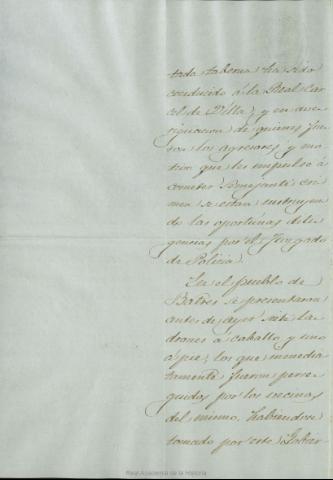 tada taberna ha sido
conducido á la Real Car
cel de Villa, y en ave
riguacion de quienes fue
ron los agresores y mo
tivo que les impulsó á
cometer semejante cri
men se estan instruyen
do las oportunas dili
gencias por el Juzgado
de Policia.
En el pueblo de
Batres se presentaron
antes de ayer siete la
drones á caballo y uno
á pie, los que inmedia
tamente fueron perse
guidos por los vecinos
del mismo, habiendose
tomado por este Gobier
Real Academia de la Historia